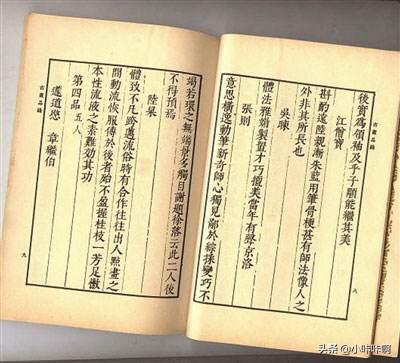 古畫品錄
後實爲領袖及乎子顒能繼其美
江僧寶
斟酌遠陸親漸朱藍用筆骨梗甚有師法像人之
外非其所長也
吳暕
體法雅媚製置才巧擅美當年有聲京洛
張則
意思橫逸動筆新奇師心獨見鄙於綜採變巧不
八
竭若環之無端景多觸目謝題徐落云此二人後
不得預焉
陸杲
體致不凡跨邁流俗時有合作往往出人點畫之
間動流恢服傳於後者殆不盈握桂枝一芳足憞
本性流液之素難効其功
第四品五人
蘧道愍 章繼伯
古畫品錄
九
头条 @小咔咔啊